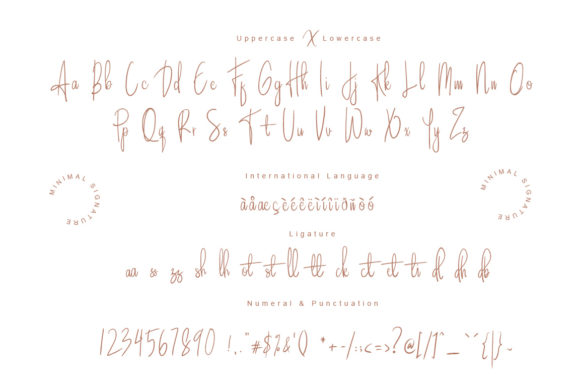 Uppercase X Lowercase
Aa Bb Cc Dd Ee Ff Gg Hh Ii Jj Kk Ll Mm Nn Oo
Pp Qq Rr Ss Tt Uu Vv Ww Xx Yy Zz
International Language
MINIMAL SIGNATURE
MINIMAL SIGNATURE
àåæçèéêëìíîïðñòó
Ligature
aa ss zz sh lh ot st ll tt ck ct et tr dl dh db
Numeral & Punctuation
1234567890 !,."#$%&'() *+-/:;<=>?@[/]^_`´{|}~